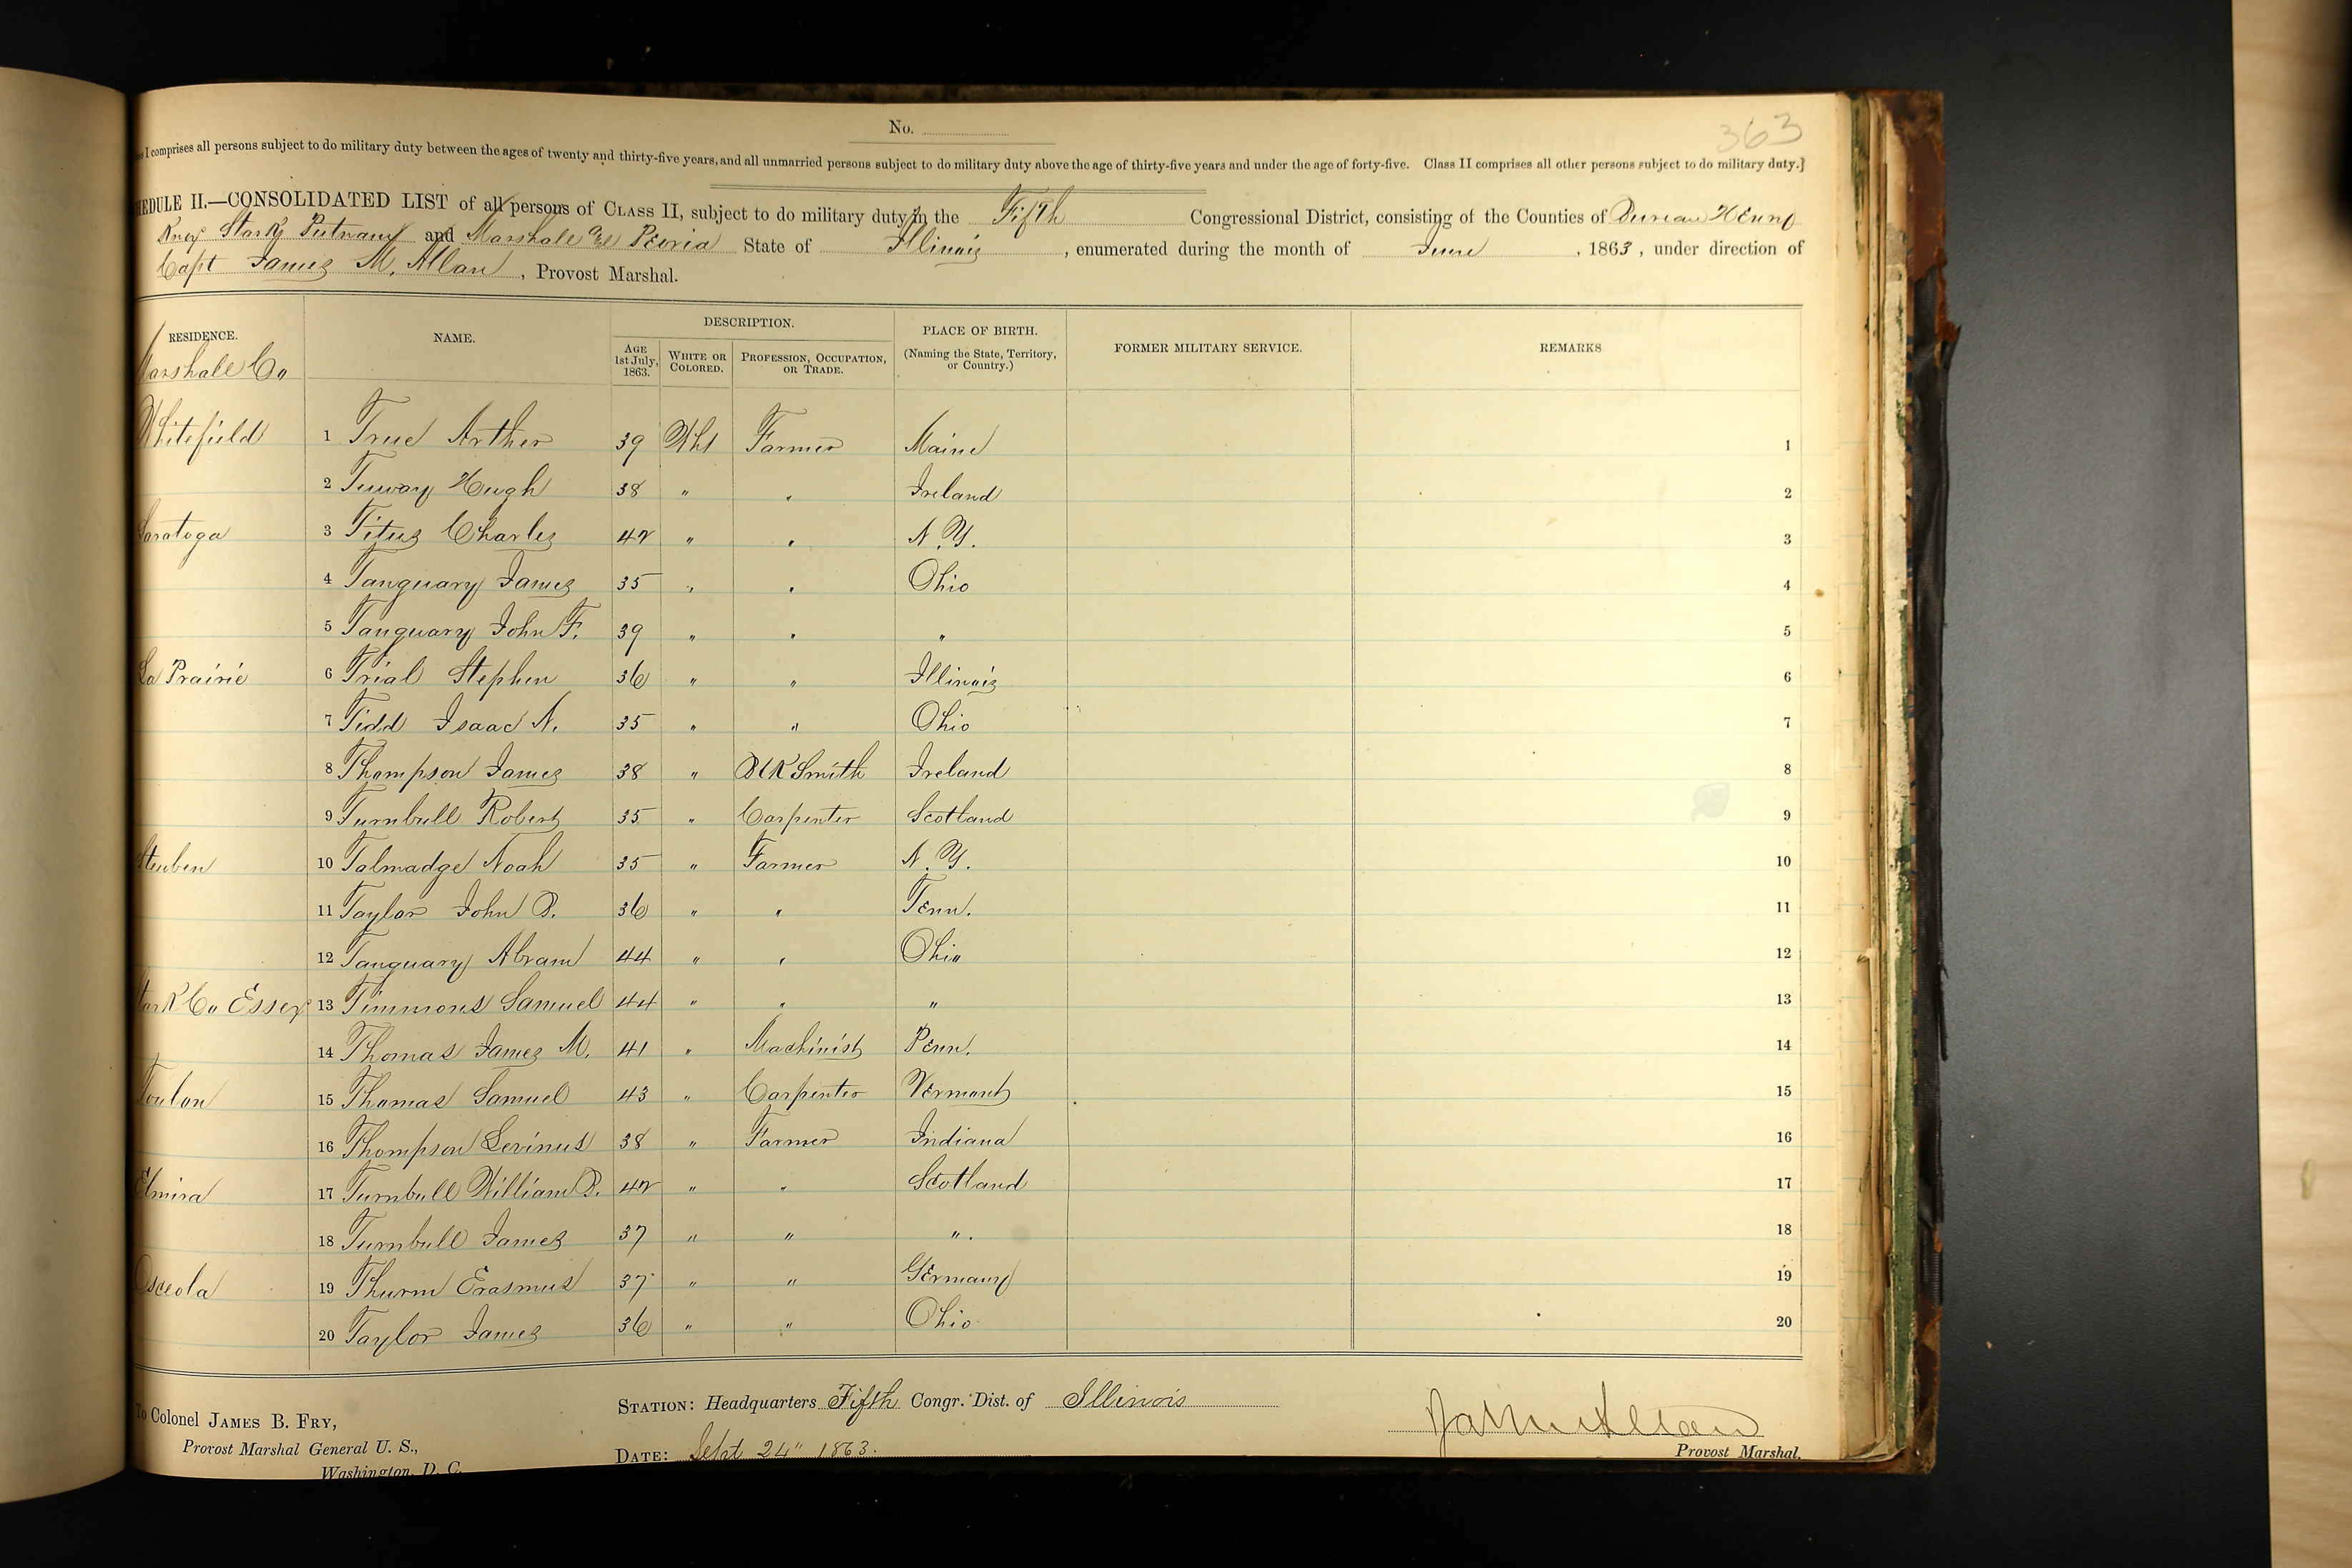 No.
363
s I comprises all persons subject to do military duty between the ages of twenty and thirty-five years, and all unmarried persons subject to do military duty above the age of thirty-five years and under the age of forty-five. Class II comprises all other persons subject to do military duty.]
HEDULE II.—CONSOLIDATED LIST of all persons of CLASS II, subject to do military duty in the Fifth Congressional District, consisting of the Counties of Bureau Henry
Knox Stark Putnam and Marshall & Peoria State of Illinois, enumerated during the month of June, 1863, under direction of
Capt James M. Allan, Provost Marshal.
RESIDENCE. NAME. DESCRIPTION. PLACE OF BIRTH. FORMER MILITARY SERVICE. REMARKS
AGE 1st July, 1863. WHITE OR COLORED. PROFESSION, OCCUPATION, OR TRADE. (Naming the State, Territory, or Country.)
Marshall Co
Whitefield 1 True Arther 39 Wht Farmer Maine 1
2 Hugh 38 " " Ireland 2
Saratoga 3 Titus Charles 42 " " N.Y. 3
4 Tanguary James 35 " " Ohio 4
5 Tanguary John F. 39 " " " 5
La Prairie 6 Trial Stephen 36 " " Illinois 6
7 Tidd Isaac N. 35 " " Ohio 7
8 Thompson James 38 " Blk Smith Ireland 8
9 Turnbull Robert 35 " Carpenter Scotland 9
Steuben 10 Talmadge Noah 35 " Farmer N.Y. 10
11 Taylor John B. 36 " " Tenn. 11
12 Tanguary Abram 44 " " Ohio 12
tark Co Essex 13 Timmons Samuel 44 " " " 13
14 Thomas James M. 41 " Machinist Penn. 14
Toulon 15 Thomas Samuel 43 " Carpenter Vermont 15
16 Thompson Levinus 38 " Farmer Indiana 16
Elmira 17 Turnbull William B. 42 " " Scotland 17
18 Turnbull James 37 " " " 18
Osceola 19 Thurm Erasmus 37 " " Germany 19
20 Taylor James 36 " " Ohio 20
To Colonel JAMES B. FRY,
Provost Marshal General U. S.,
Washington, D. C.
STATION: Headquarters Fifth Congr. Dist. of Illinois
DATE: Sept 24" 1863.
Jas M Allan
Provost Marshal.